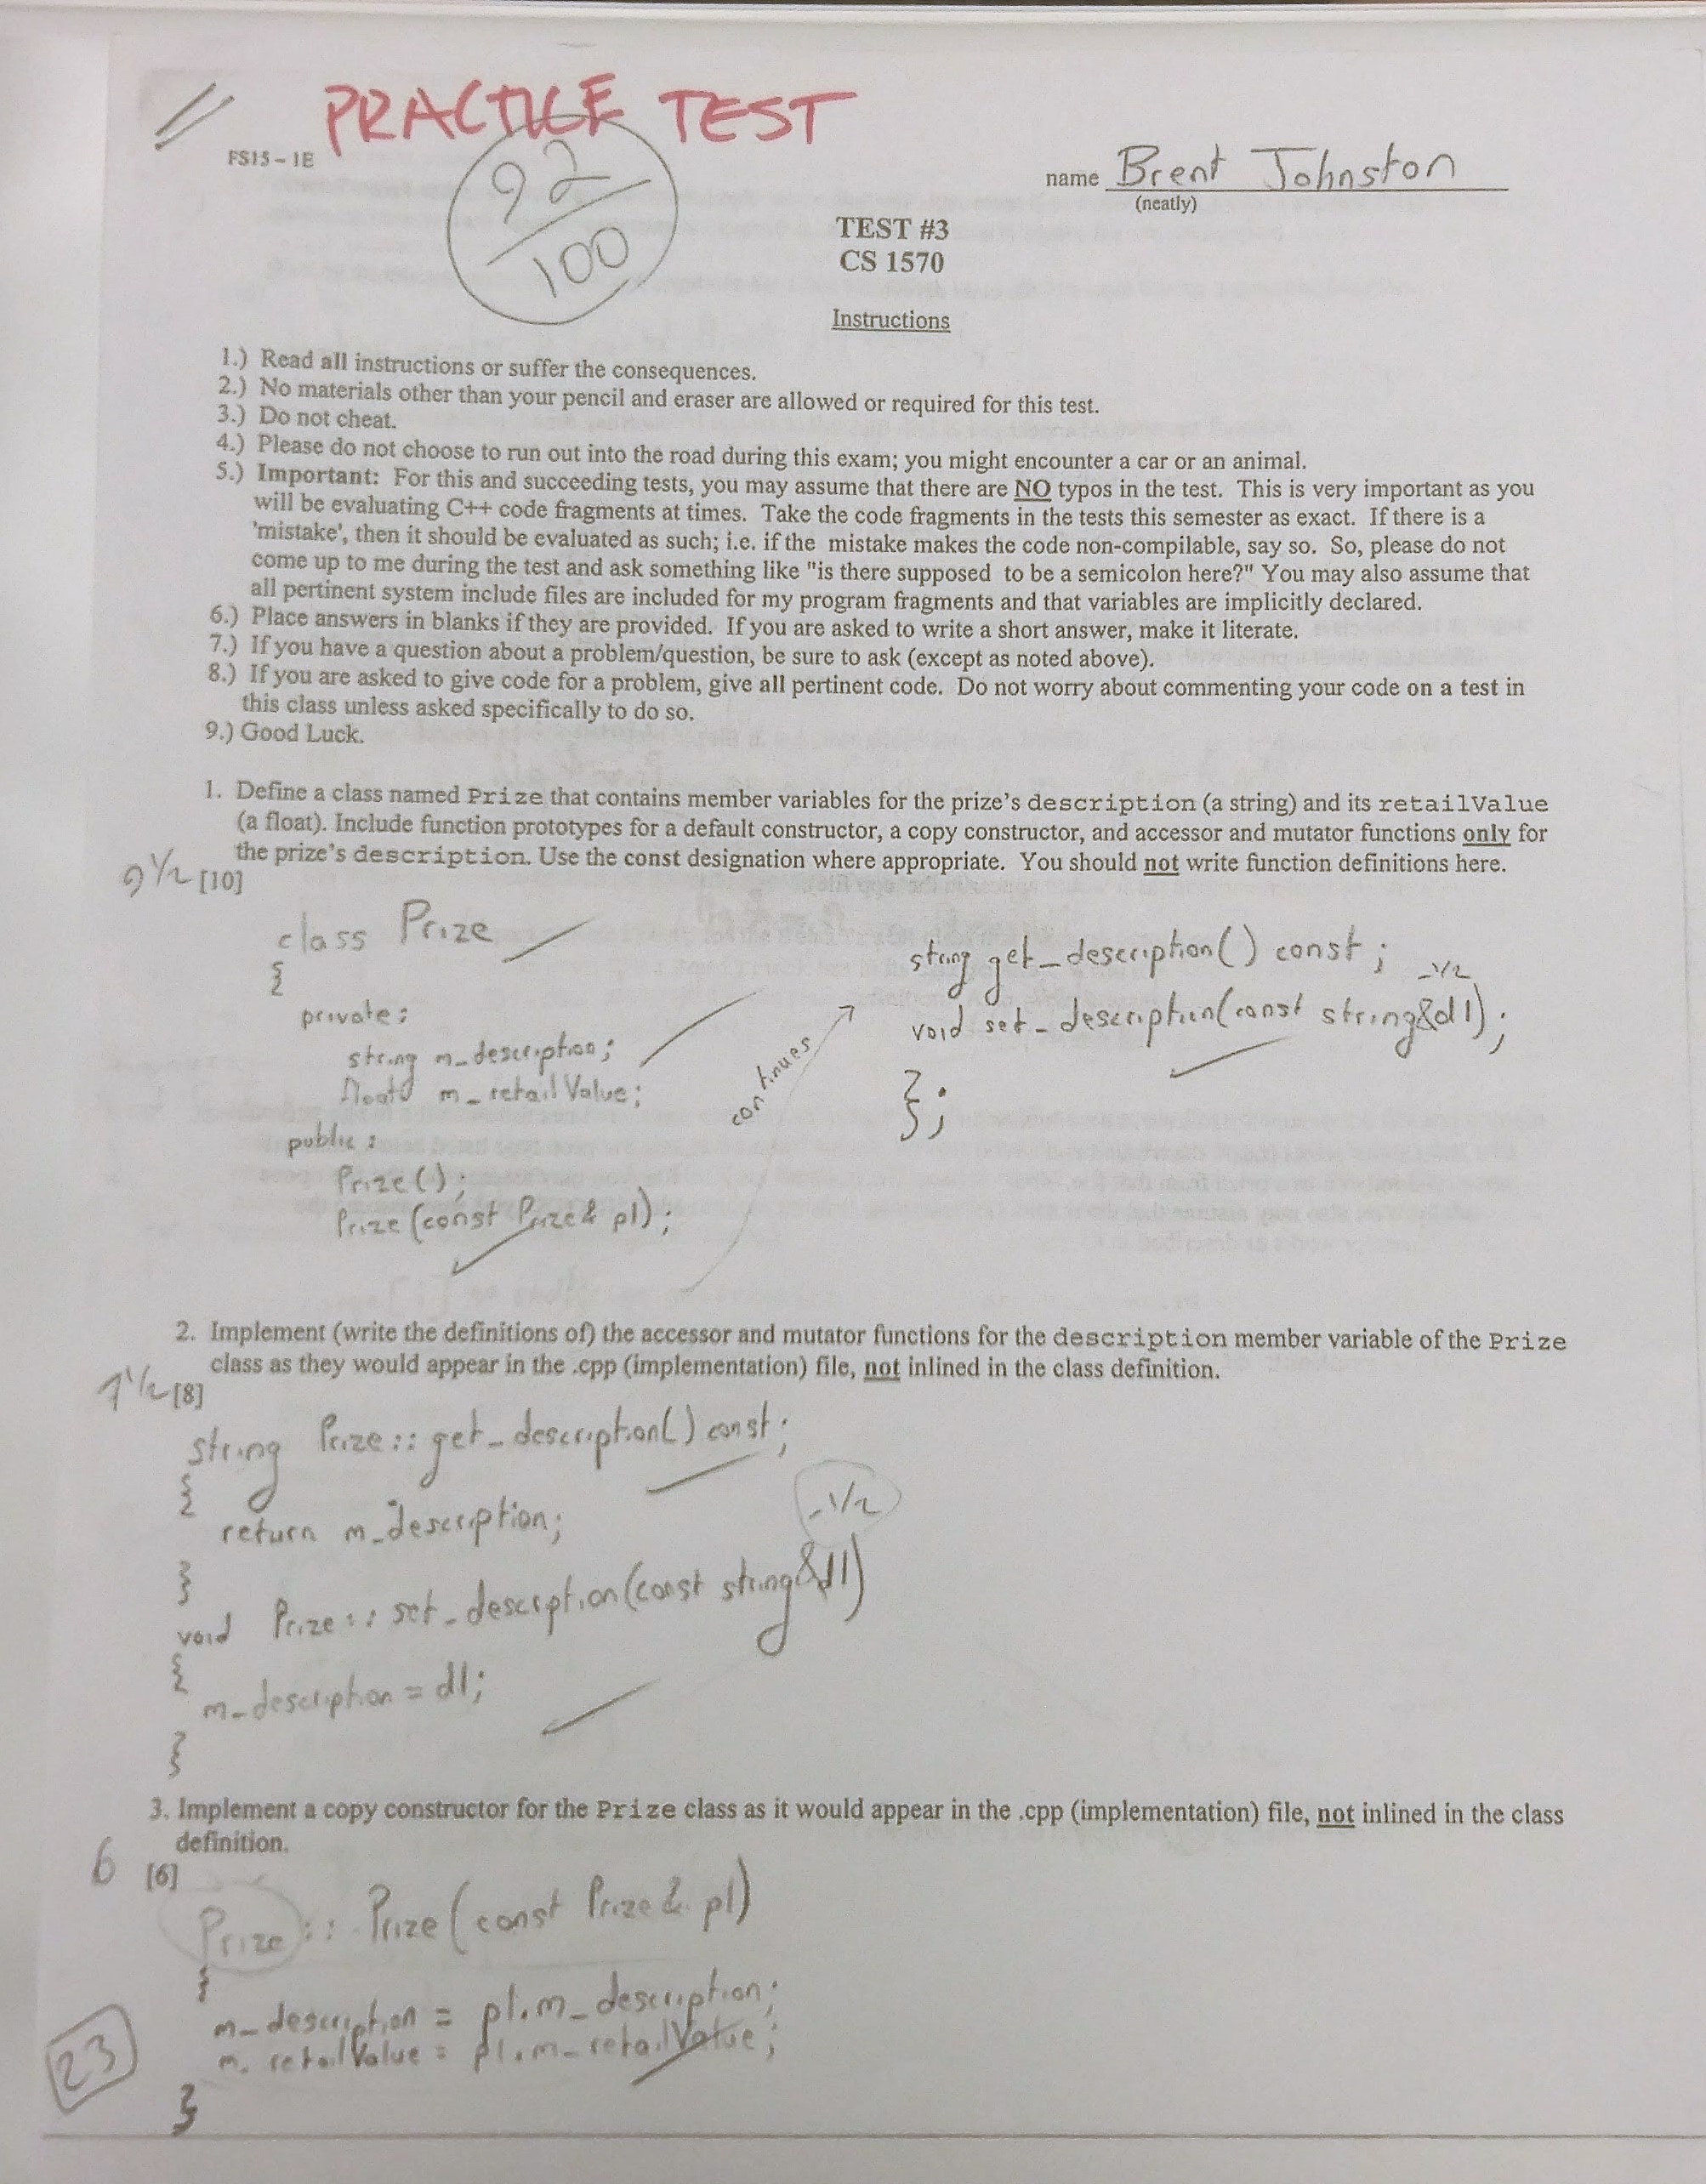 PRACTICE TEST
FS15 - 1E
92
100
name Brent Johnston
(neatly)
TEST #3
CS 1570
Instructions
1.) Read all instructions or suffer the consequences.
2.) No materials other than your pencil and eraser are allowed or required for this test.
3.) Do not cheat.
4.) Please do not choose to run out into the road during this exam; you might encounter a car or an animal.
5.) Important: For this and succeeding tests, you may assume that there are NO typos in the test. This is very important as you
will be evaluating C++ code fragments at times. Take the code fragments in the tests this semester as exact. If there is a
'mistake', then it should be evaluated as such; i.e. if the mistake makes the code non-compilable, say so. So, please do not
come up to me during the test and ask something like "is there supposed to be a semicolon here?" You may also assume that
all pertinent system include files are included for my program fragments and that variables are implicitly declared.
6.) Place answers in blanks if they are provided. If you are asked to write a short answer, make it literate.
7.) If you have a question about a problem/question, be sure to ask (except as noted above).
8.) If you are asked to give code for a problem, give all pertinent code. Do not worry about commenting your code on a test in
this class unless asked specifically to do so.
9.) Good Luck.
1. Define a class named Prize that contains member variables for the prize's description (a string) and its retailValue
(a float). Include function prototypes for a default constructor, a copy constructor, and accessor and mutator functions only for
the prize's description. Use the const designation where appropriate. You should not write function definitions here.
9 1/2 [10]
class Prize
{
private:
string m_description;
float m_retailValue;
public:
Prize();
Prize(const Prize& p1);
continues
string get_description() const;
-1/2
void set_description(const string&d1);
};
2. Implement (write the definitions of) the accessor and mutator functions for the description member variable of the Prize
class as they would appear in the .cpp (implementation) file, not inlined in the class definition.
7 1/2 [8]
string Prize::get_description() const;
{
return m_description;
}
-1/2
void Prize::set_description(const string&d1)
{
m_description = d1;
}
3. Implement a copy constructor for the Prize class as it would appear in the .cpp (implementation) file, not inlined in the class
definition.
6 [6]
Prize::Prize(const Prize& p1)
{
m_description = p1.m_description;
m_retailValue = p1.m_retailValue;
}
23